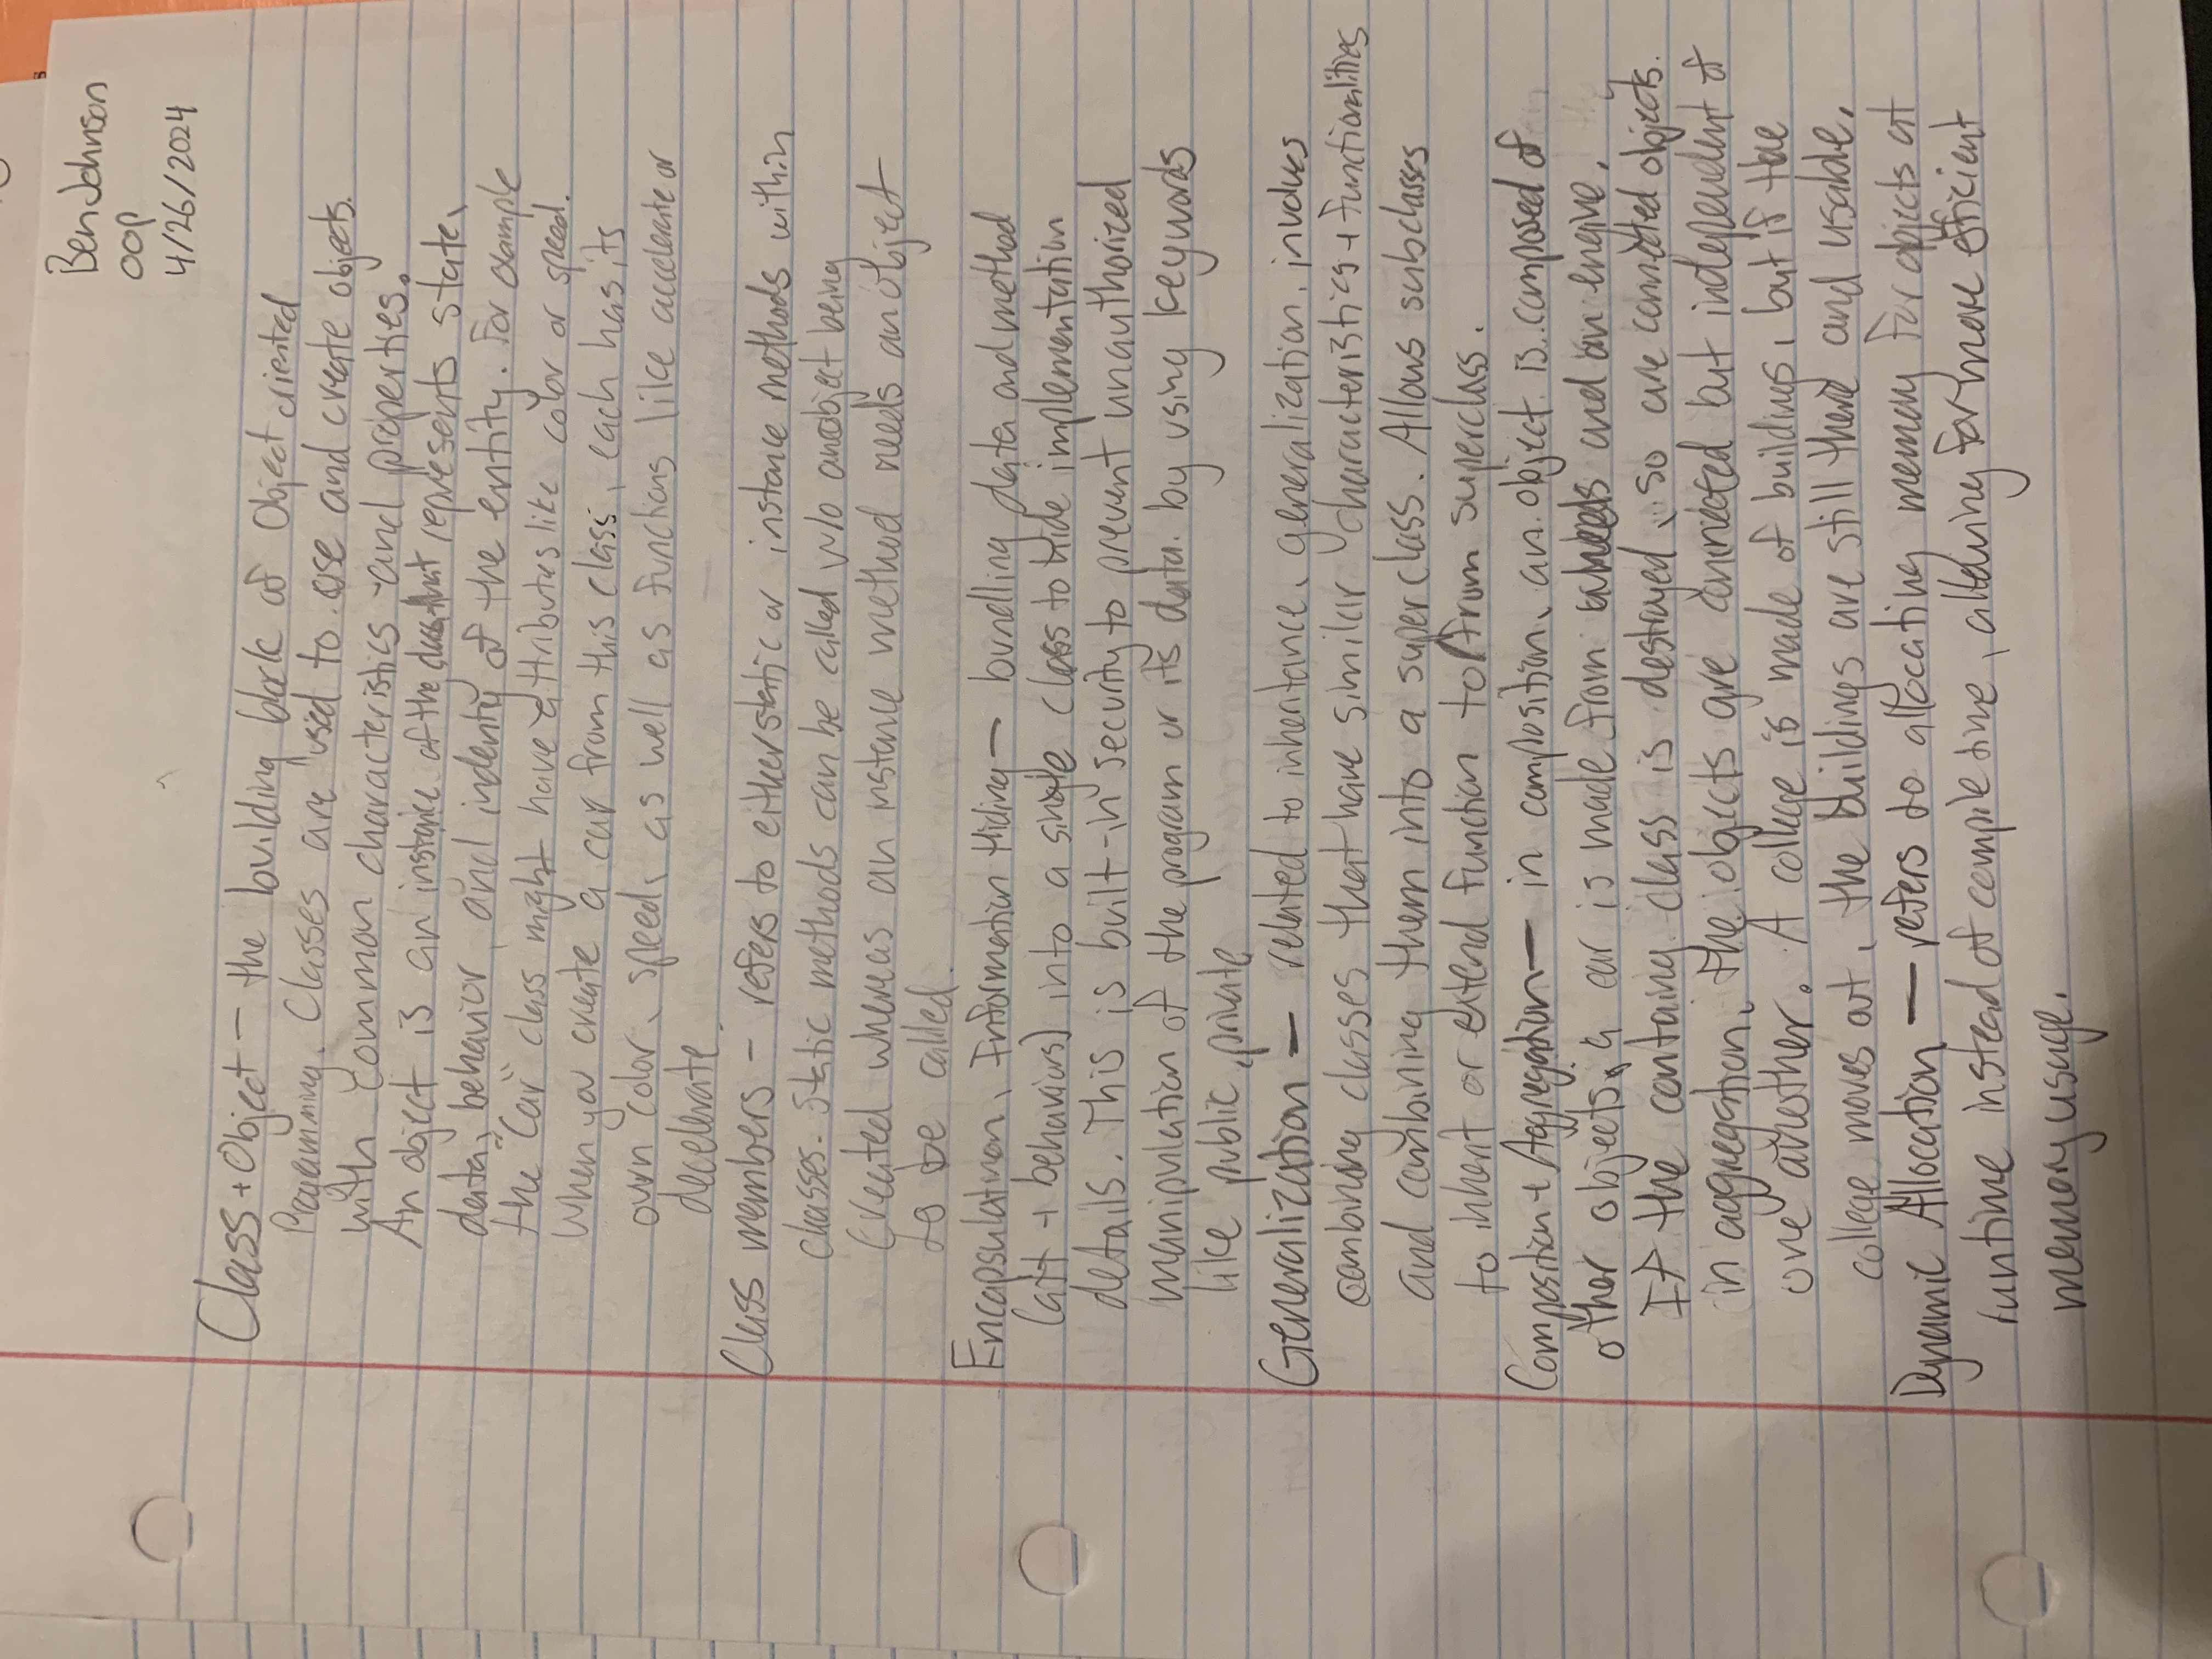 Ben Johnson
OOP
4/26/2024
Class + Object — the building block of Object oriented
Progamming. Classes are used to use and create objects.
with common characteristics and properties.
An object is an instance of the class that represents state,
data, behavior, and indenty of the entity. For example
the "Car" class might have attributes like color or speed.
When you create a car from this class, each has its
own color, speed, as well as functions like accelerate or
decelerate.
Class members — refers to either static or instance methods within
classes. Static methods can be called w/o an object being
created whereas an instance method needs an object
to be called.
Encapsulatinon, Information Hiding — bundling data and method
(att + behaviors) into a single class to hide implementation
details. This is built-in security to prevent unauthorized
manipulation of the program or its data. by using keywords
like public, private
Generalization — related to inheritance, generalization, involves
combining classes that have similar characteristics + functionalities
and combining them into a superclass. Allows subclasses
to inherit or extend function to/from superclass.
Composition + Aggregation — in composition, an object is composed of
other objects, a car is made from wheels and an engine.
If the containg class is destroyed, so are connected objects.
in aggregation, the objects are connected but independent of
one another. A college is made of buildings, but if the
college moves out, the buildings are still there and usable.
Dynamic Allocation — refers to allocating memory for objects at
runtime instead of compile time, allowing for more efficient
memory usage.